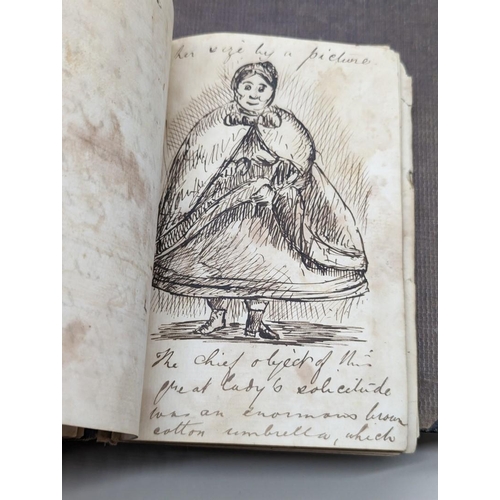 her size by a picture.
The chief object of this
great lady's solicitude
was an enormous brown
cotton umbrella, which